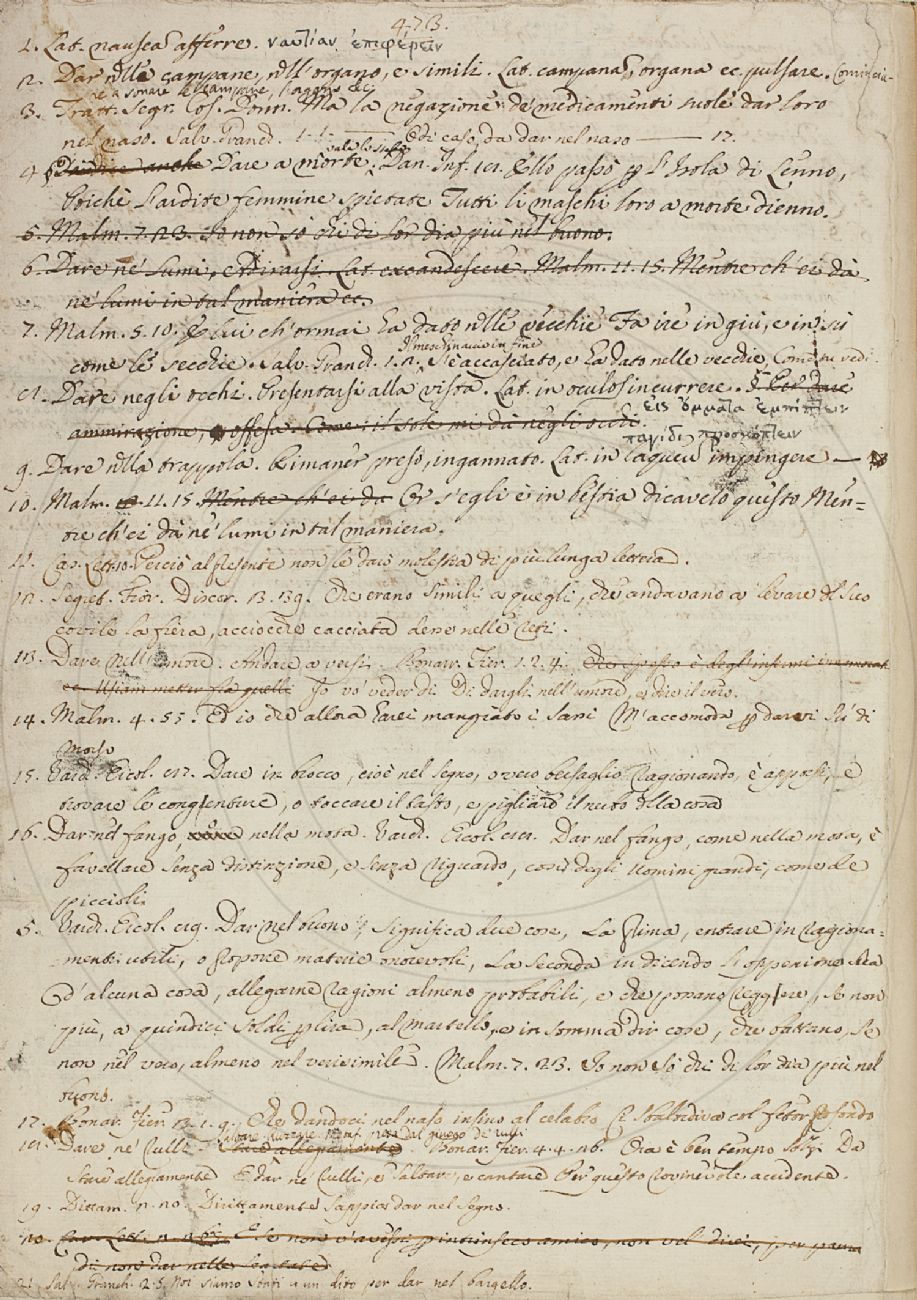 473.
1. Lat. nausea afferre. ναυτίαν ἐπιφέρειν
2. Dar nelle campane, nell'organo, e simili. Lat. campana, organa ec. pulsare. Comincia-
re a sonare le campane, l'organo ec.
3. Tratt. Segr. Cos. Donn. Ma la negazione de' medicamenti suole dar loro
nel naso. Salv. Granch. 1. 1. Odi caso, da dar nel naso — 17.
vale lo stesso
4. Dare a morte. Dan. Inf. 18. Ello passò p l'Isola di Lenno,
Poichè l'ardite femmine spietate Tutti li maschi loro a morte dienno.
5. Malm. 7. 23. Io non sò chi di lor dia più nel buono.
6. Dare ne' lumi, e Adirarsi. Lat. excandescere. Malm. 11. 15. Mentre ch'ei dà
ne' lumi in tal maniera ec.
7. Malm. 5. 10. E lui ch'ormai ha dato nelle vecchie Fa ire in giù, e in sù
come le secchie. Salv. Granch. 1. 2. S'è accasciato, e ha dato nelle vecchie, Come tu vedi.
Il meschinaccio in fine
8. Dare negli occhi. Presentarsi alla vista. Lat. in oculos incurrere. Per dare
εἰς ὄμματα ἐμπίπτειν
ammirazione, o offesa. Come: il sole mi dà negli occhi.
παγίδι προσκόπτειν
9. Dare nella trappola. Rimaner preso, ingannato. Lat. in laqueu impingere —
10. Malm. 11. 15. Mentre ch'ei da Or s'egli è in bestia dicavelo questo Men=
tre ch'ei dà ne' lumi in tal maniera.
11. Car. Lett. Perciò al presente non le darò molestia di più lunga lettera.
12. Segret. Fior. Discor. 13. 139. Che erano simili a quegli, che andavano a levare del suo
covile la fiera, acciocchè cacciata desse nelle reti.
13. Dare nell'umore. Andare a versi. Bonarr. Fier. 1. 2. 4.
Io vo' veder di Di dargli nell'umore, e dire il vero.
14. Malm. 4. 55. Ed io che allora harei mangiato i sassi M'accomodai p darvi su di
morso
15. Varch. Ercol. 87. Dare in brocco, cioè nel segno, overo bersaglio ragionando, è apporsi, e
trovare le congienture, o toccare il tasto, e pigliare il nerbo della cosa
16. Dar nel fango, come nella mota. Varch. Ercol. 88. Dar nel fango, come nella mota, è
favellare senza distinzione, e senza riguardo, così degli uomini grandi, come de'
piccioli.
5. Varch. Ercol. 89. Dar nel buono, significa due cose, La prima, entrare in ragiona=
menti utili, o proporre materie onorevoli, La seconda in dicendo l'oppenione sua
d'alcuna cosa, allegarne ragioni almeno probabili, e che possano reggiere, se non
più, a quindici soldi p lira, al martello, e in somma dir cose, che battano, se
non nel vero, almeno nel verisimile. Malm. 7. 23. Io non sò chi di lor dia più nel
buono.
17. Bonar. Fier. 3. 1. 9. Che dandoci nel naso insino al celabro Ci sbalordiva col fetor profondo
18. Dare ne' Rulli Stare allegramente. Bonar. Fier. 4. 4. 26. Ora è ben tempo Da
Stare allegramente E dar ne' Rulli, e saltare, e cantare Per questo convenevole accidente.
19. Dittam. 2. 20. Dirittamente sappios dar nel segno.
20. Car. Lett. 2. 26. E se non v'avessi p intrinseco amico, non vel direi, per paura
di non dar nelle
21. Salv. Granch. 2. 5. Noi siamo stati a un dito per dar nel bargello.